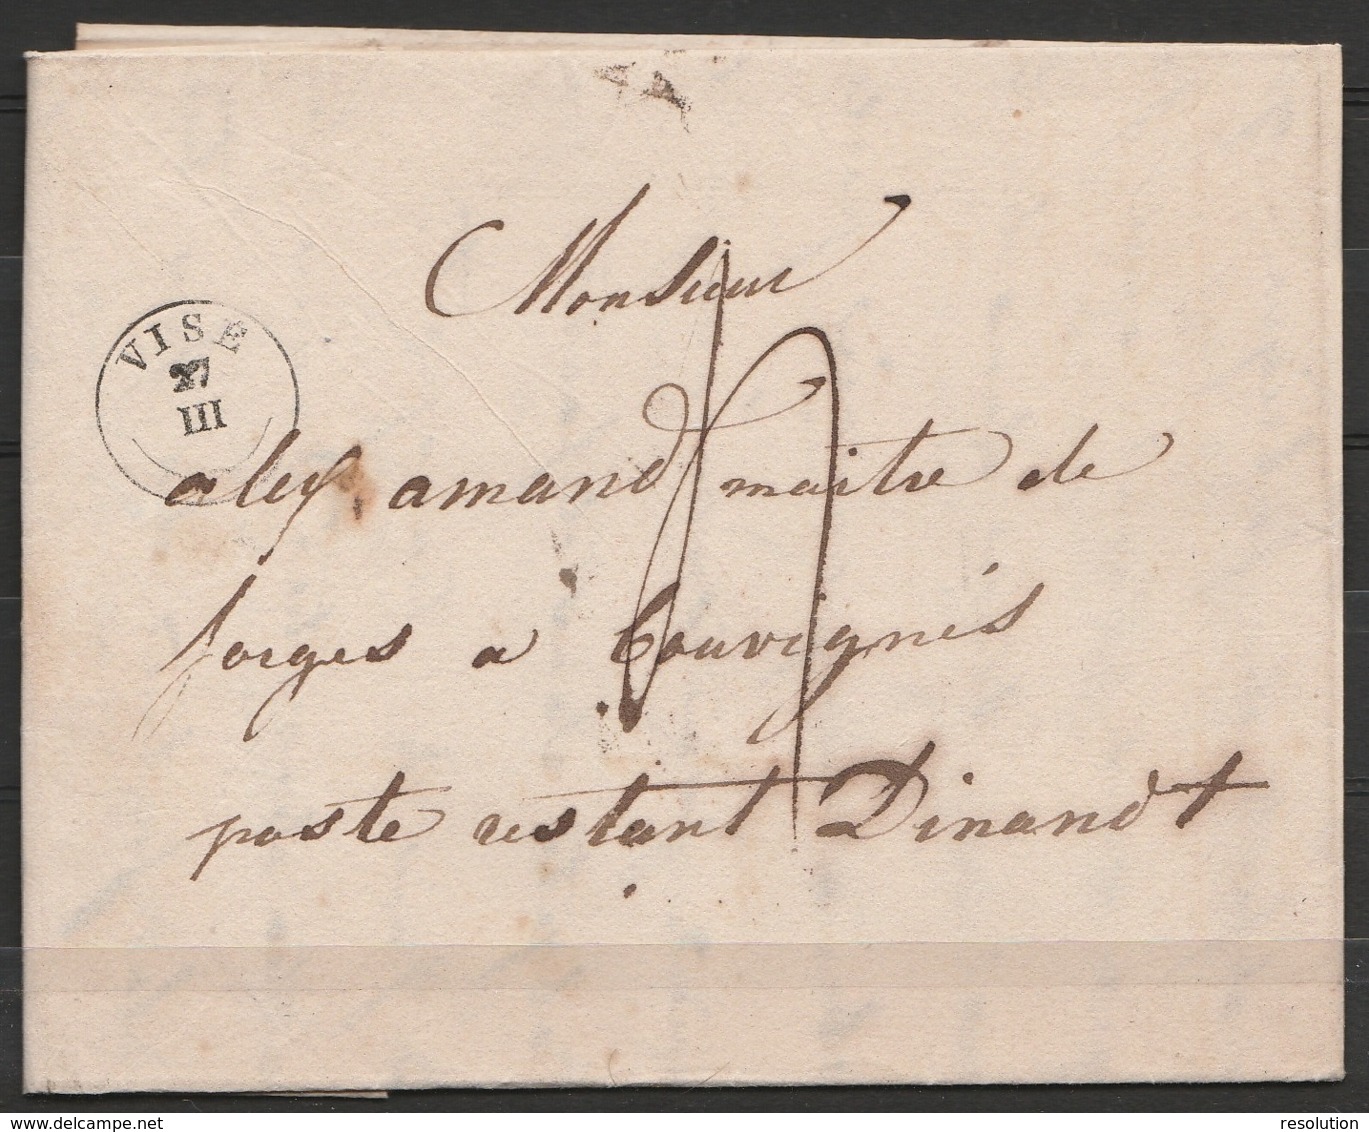 Monsieur
VISE
27
III
alex amand maitre de
forges a bouvignes
poste restant Dinandt
delcampe.net
resolution